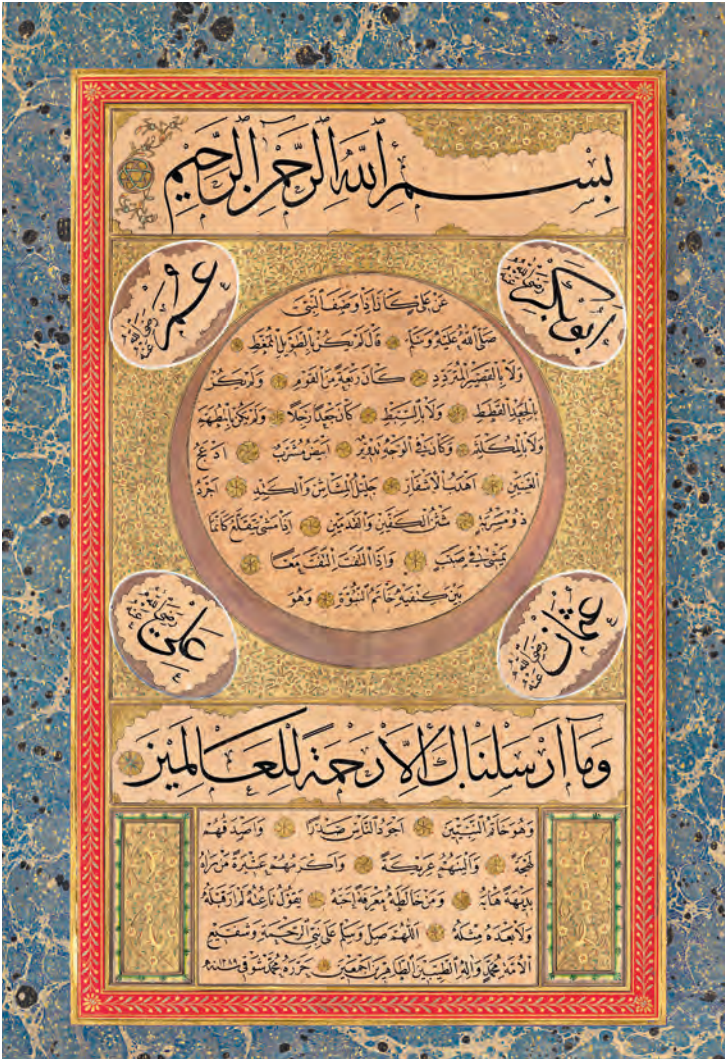 بسم الله الرحمن الرحيم
ابوبكر رضي الله عنه
عمر رضي الله عنه
عن علي كان اذا وصف النبي
صلى الله عليه وسلم قال لم يكن بالطويل الممغط
ولا بالقصير المتردد كان ربعة من القوم ولم يكن
بالجعد القطط ولا بالسبط كان جعدا رجلا ولم يكن بالمطهم
ولا بالمكلثم وكان في الوجه تدوير ابيض مشرب ادعج
العينين اهدب الاشفار جليل المشاش والكتد اجرد
ذو مسربة شثن الكفين والقدمين اذا مشى يتقلع كانما
يمشي في صبب واذا التفت التفت معا
بين كتفيه خاتم النبوة وهو
عثمان رضي الله عنه
علي رضي الله عنه
وما ارسلناك الا رحمة للعالمين
وهو خاتم النبيين اجود الناس صدرا واصدقهم
لهجة والينهم عريكة واكرمهم عشيرة من راه
بديهة هابه ومن خالطه معرفة احبه يقول ناعته لم ار قبله
ولا بعده مثله اللهم صل وسلم على نبي الرحمة وشفيع
الامة محمد واله الطيبين الطاهرين اجمعين حرره محمد شوقي